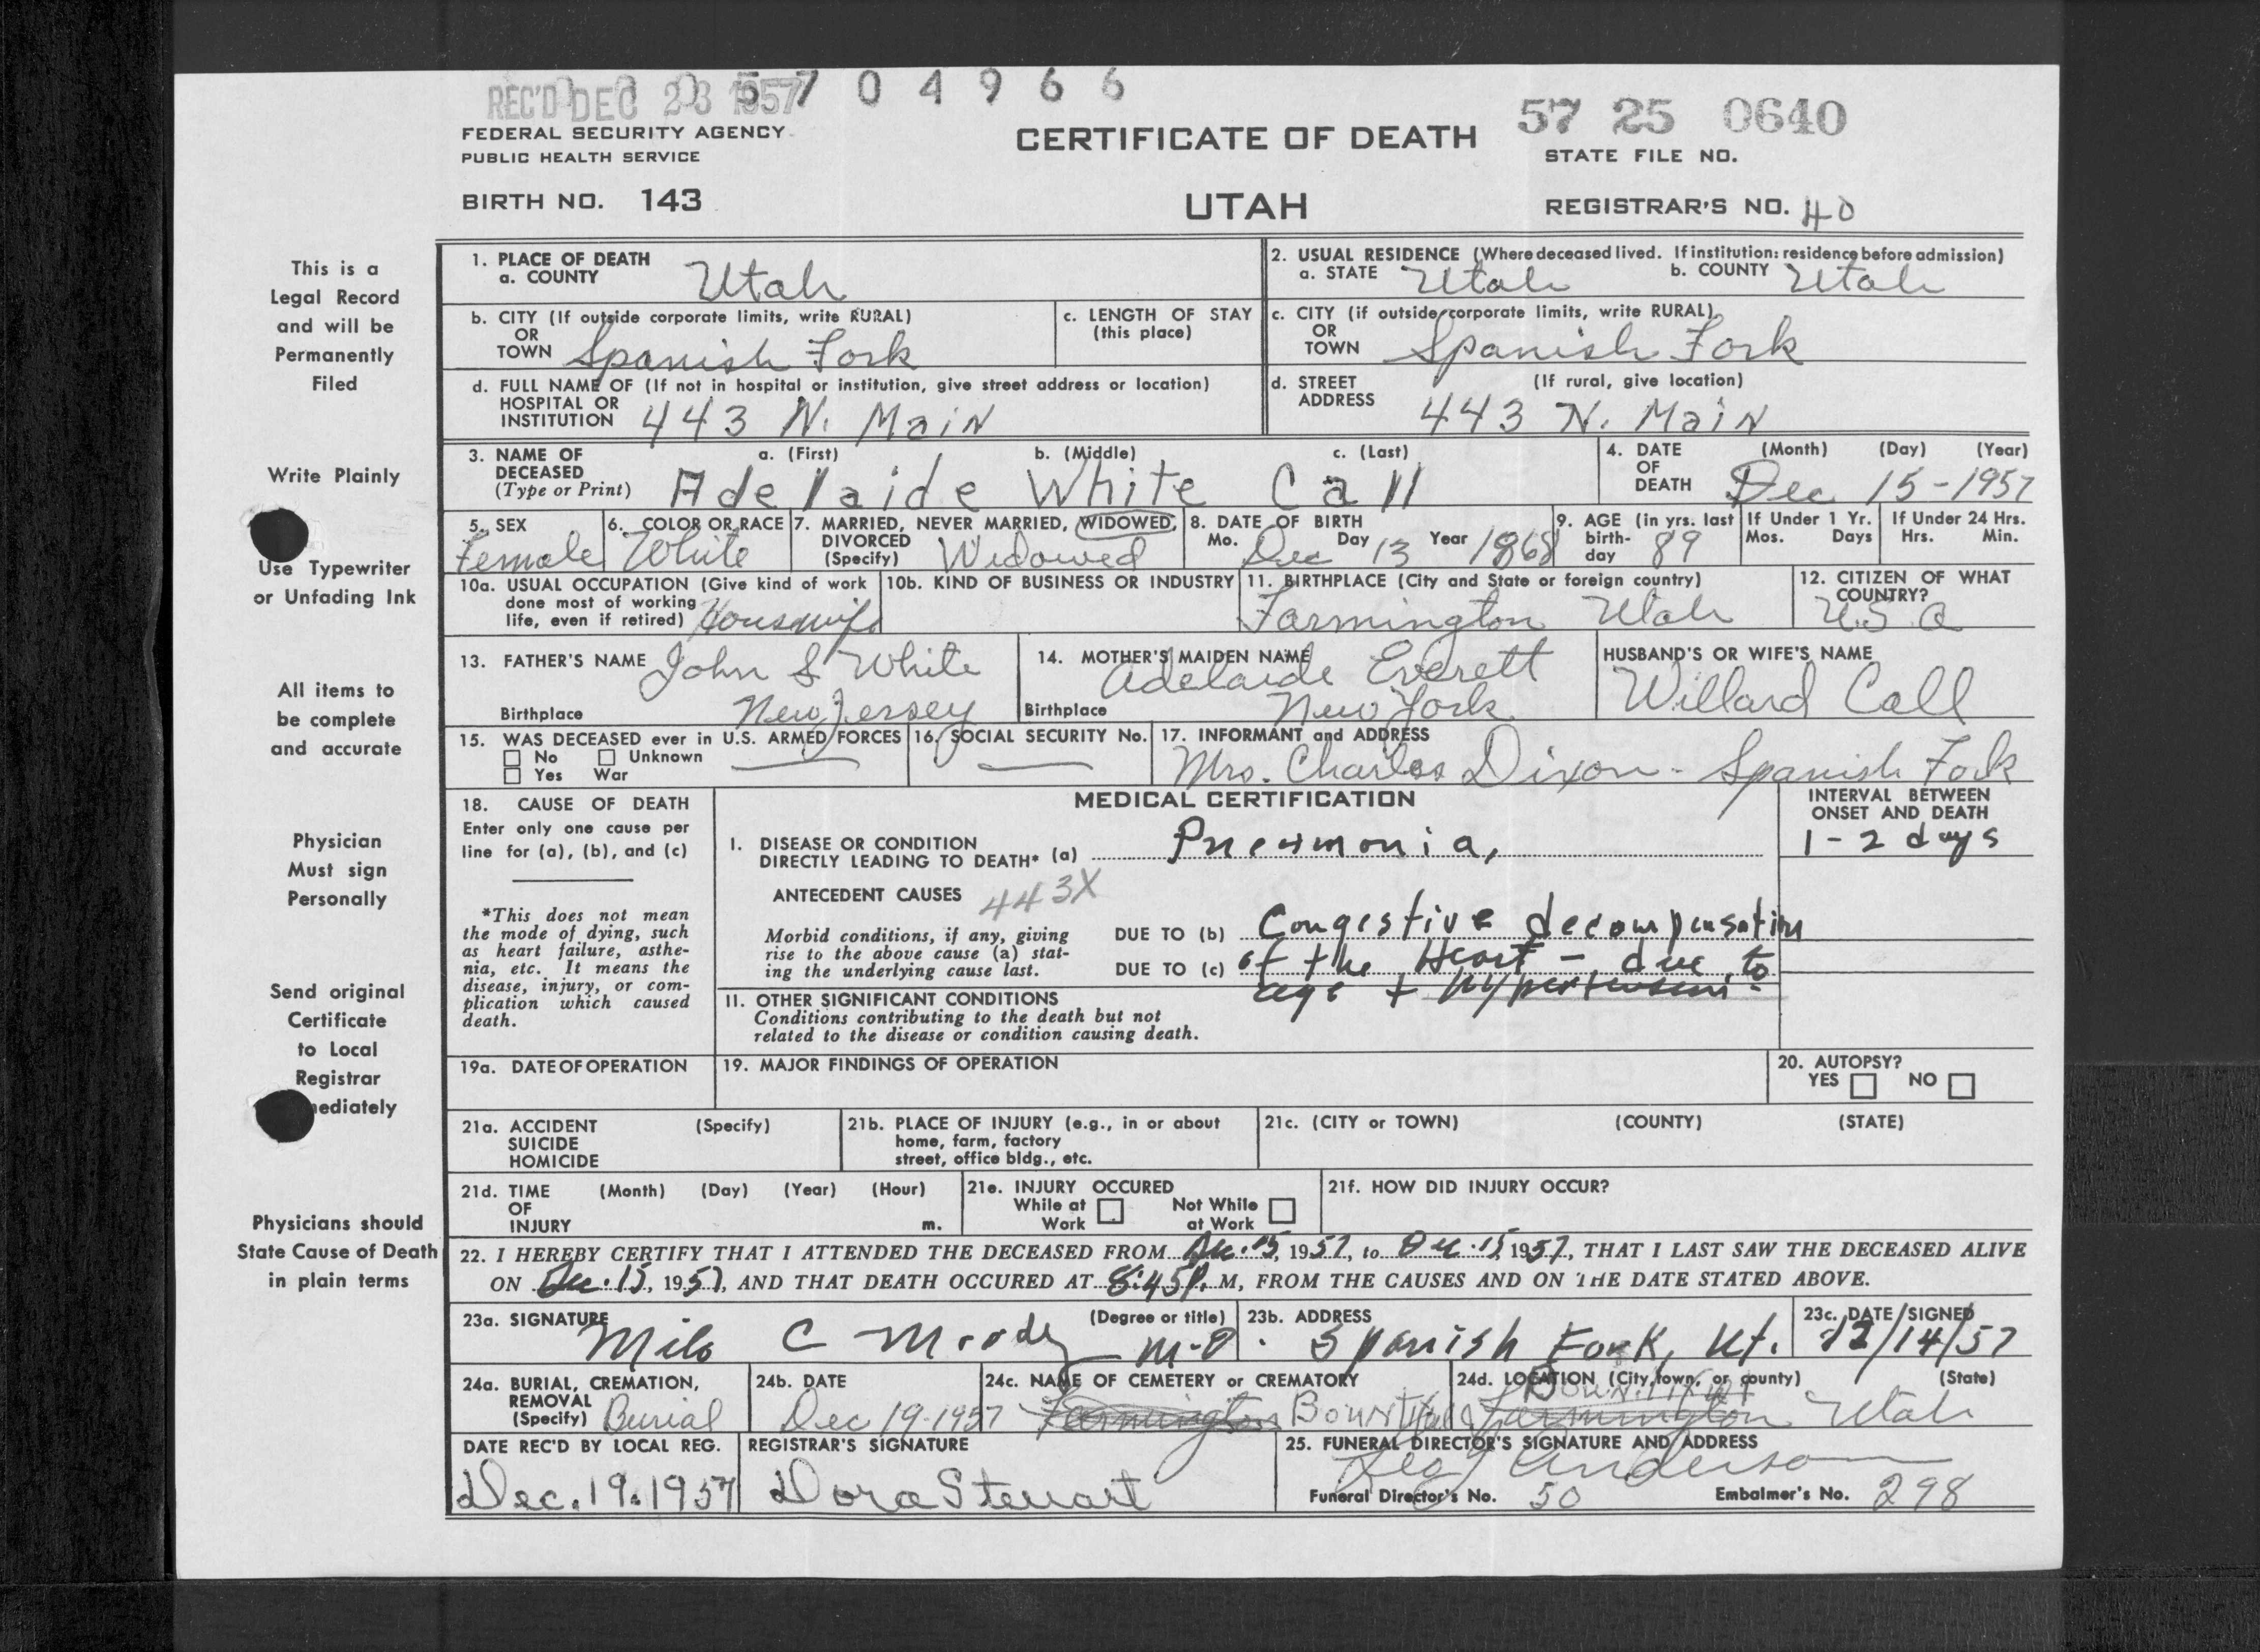 REC'D DEC 23 1957 5704966
57 25 0640
FEDERAL SECURITY AGENCY
PUBLIC HEALTH SERVICE
CERTIFICATE OF DEATH
STATE FILE NO.
BIRTH NO. 143
UTAH
REGISTRAR'S NO. 40
This is a
Legal Record
and will be
Permanently
Filed
Write Plainly
Use Typewriter
or Unfading Ink
All items to
be complete
and accurate
Physician
Must sign
Personally
Send original
Certificate
to Local
Registrar
mediately
Physicians should
State Cause of Death
in plain terms
1. PLACE OF DEATH
a. COUNTY Utah
2. USUAL RESIDENCE (Where deceased lived. If institution: residence before admission)
a. STATE Utah b. COUNTY Utah
b. CITY (If outside corporate limits, write RURAL)
OR
TOWN Spanish Fork
c. LENGTH OF STAY
(this place)
c. CITY (if outside corporate limits, write RURAL)
OR
TOWN Spanish Fork
d. FULL NAME OF (If not in hospital or institution, give street address or location)
HOSPITAL OR
INSTITUTION 443 N. Main
d. STREET (If rural, give location)
ADDRESS 443 N. Main
3. NAME OF a. (First) b. (Middle) c. (Last)
DECEASED
(Type or Print) Adelaide White Call
4. DATE (Month) (Day) (Year)
OF
DEATH Dec 15-1957
5. SEX
Female
6. COLOR OR RACE
White
7. MARRIED, NEVER MARRIED, WIDOWED,
DIVORCED
(Specify) Widowed
8. DATE OF BIRTH
Mo. Dec Day 13 Year 1868
9. AGE (in yrs. last
birth-
day 89
If Under 1 Yr.
Mos. Days
If Under 24 Hrs.
Hrs. Min.
10a. USUAL OCCUPATION (Give kind of work
done most of working
life, even if retired) Housewife
10b. KIND OF BUSINESS OR INDUSTRY
11. BIRTHPLACE (City and State or foreign country)
Farmington Utah
12. CITIZEN OF WHAT
COUNTRY?
U.S.A
13. FATHER'S NAME John S White
Birthplace New Jersey
14. MOTHER'S MAIDEN NAME
Adelaide Everett
Birthplace New York
HUSBAND'S OR WIFE'S NAME
Willard Call
15. WAS DECEASED ever in U.S. ARMED FORCES
No Unknown
Yes War
16. SOCIAL SECURITY No.
17. INFORMANT and ADDRESS
Mrs. Charles Dixon - Spanish Fork
18. CAUSE OF DEATH
Enter only one cause per
line for (a), (b), and (c)
*This does not mean
the mode of dying, such
as heart failure, asthe-
nia, etc. It means the
disease, injury, or com-
plication which caused
death.
MEDICAL CERTIFICATION
INTERVAL BETWEEN
ONSET AND DEATH
I. DISEASE OR CONDITION
DIRECTLY LEADING TO DEATH* (a) Pneumonia, 1-2 days
ANTECEDENT CAUSES 443X
Morbid conditions, if any, giving
rise to the above cause (a) stat-
ing the underlying cause last.
DUE TO (b) Congestive decompensation
DUE TO (c) of the Heart - due to
age + hypertension-
II. OTHER SIGNIFICANT CONDITIONS
Conditions contributing to the death but not
related to the disease or condition causing death.
19a. DATE OF OPERATION
19. MAJOR FINDINGS OF OPERATION
20. AUTOPSY?
YES NO
21a. ACCIDENT (Specify)
SUICIDE
HOMICIDE
21b. PLACE OF INJURY (e.g., in or about
home, farm, factory
street, office bldg., etc.
21c. (CITY or TOWN) (COUNTY) (STATE)
21d. TIME (Month) (Day) (Year) (Hour)
OF
INJURY m.
21e. INJURY OCCURED
While at Not While
Work at Work
21f. HOW DID INJURY OCCUR?
22. I HEREBY CERTIFY THAT I ATTENDED THE DECEASED FROM Dec. 15, 1957, to Dec. 15, 1957, THAT I LAST SAW THE DECEASED ALIVE
ON Dec. 15, 1957, AND THAT DEATH OCCURED AT 8:45 P. M, FROM THE CAUSES AND ON THE DATE STATED ABOVE.
23a. SIGNATURE (Degree or title)
Milo C Moody M-D.
23b. ADDRESS
Spanish Fork, Ut.
23c. DATE SIGNED
12/14/57
24a. BURIAL, CREMATION,
REMOVAL
(Specify) Burial
24b. DATE
Dec 19-1957
24c. NAME OF CEMETERY or CREMATORY
Farmington Bountiful
24d. LOCATION (City, town, or county) (State)
Bountiful
Farmington Utah
DATE REC'D BY LOCAL REG.
Dec. 19. 1957
REGISTRAR'S SIGNATURE
Dora Stewart
25. FUNERAL DIRECTOR'S SIGNATURE AND ADDRESS
Anderson
Funeral Director's No. 50 Embalmer's No. 298